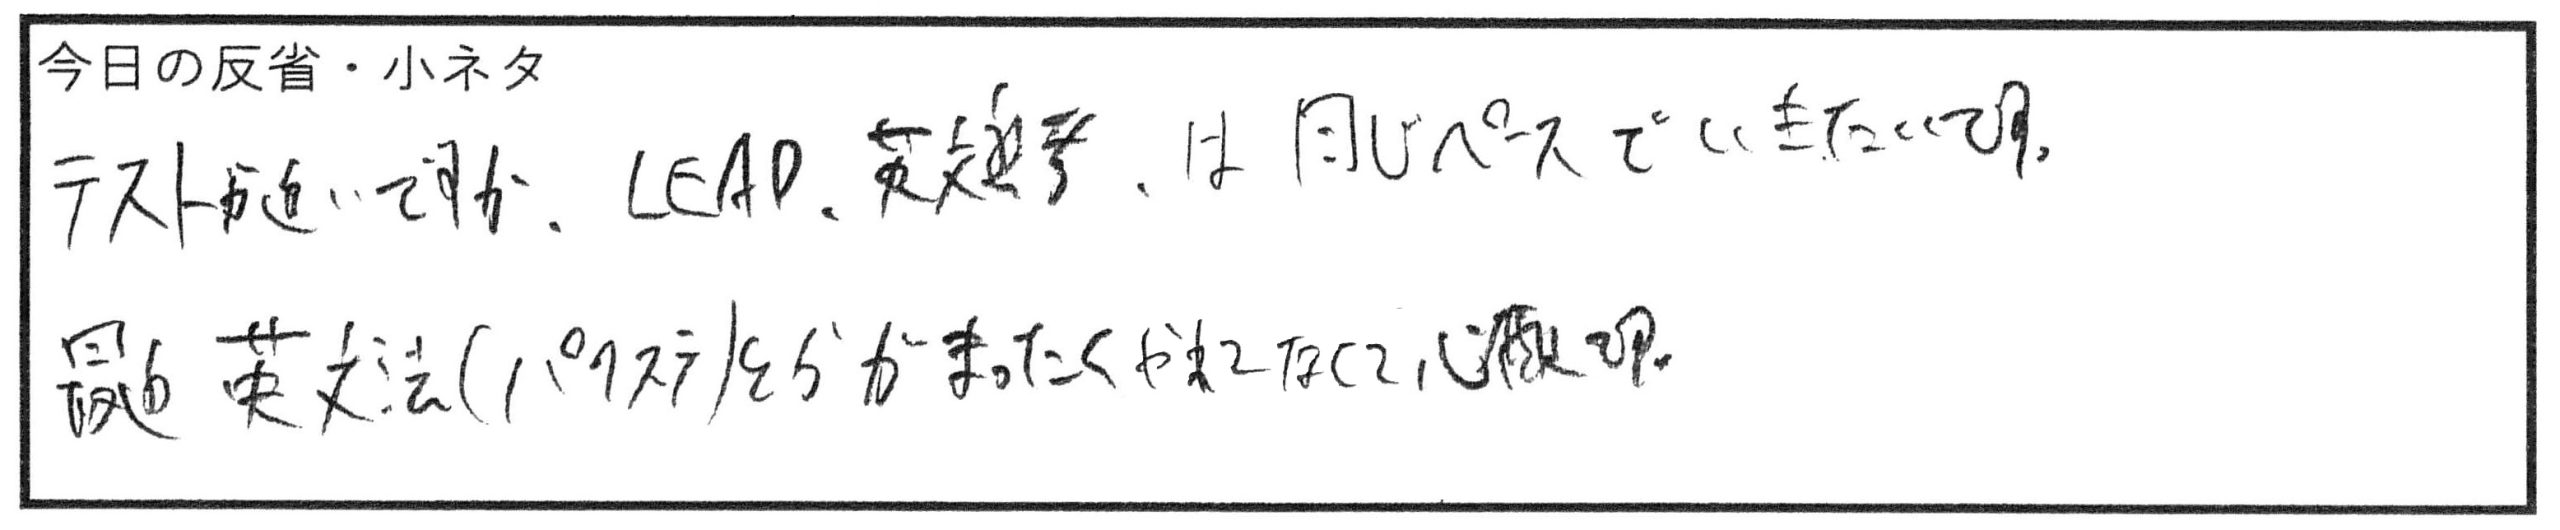 今日の反省・小ネタ
テストが近いですが、LEAD、英文思考、は同じペースでいきたいです。
最近英文法(パワステ)とかがまったくやれてなくて心配です。